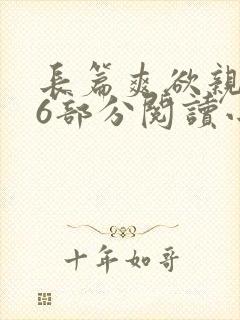 長篇爽欲親
6部分閱讀小
十年如哥